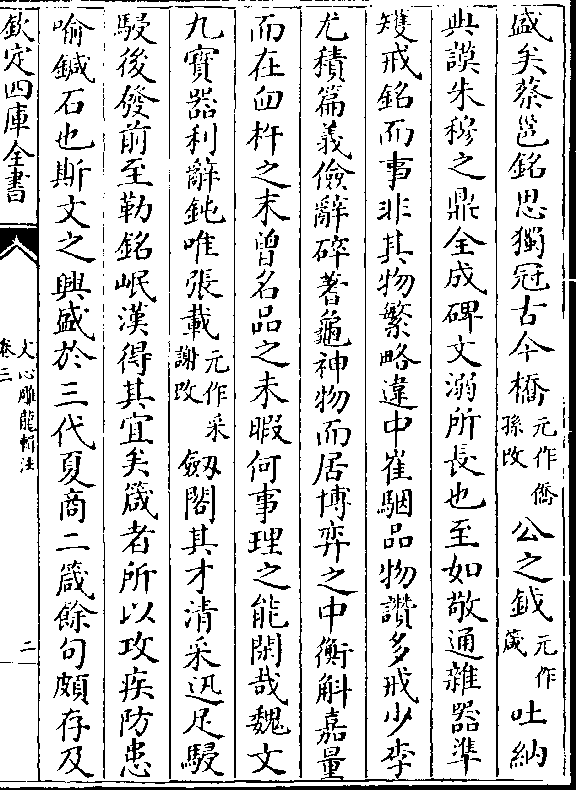 盛矣蔡邕銘思獨冠古今橋元作僑孫改公之鉞元作箴吐納
典謨朱穆之鼎全成碑文溺所長也至如敬通雜器準
矱戒銘而事非其物繁略違中崔駰品物讚多戒少李
尤積篇義儉辭碎蓍龜神物而居博弈之中衡斛嘉量
而在臼杵之末曾名品之未暇何事理之能閑哉魏文
九寳器利辭鈍唯張載元作采謝改劒閣其才清采迅足駸
駸後發前至勒銘岷漢得其宜矣箴者所以攻疾防患
喻鍼石也斯文之興盛於三代夏商二箴餘句頗存及
欽定四庫全書
文心雕龍輯注
卷三
二